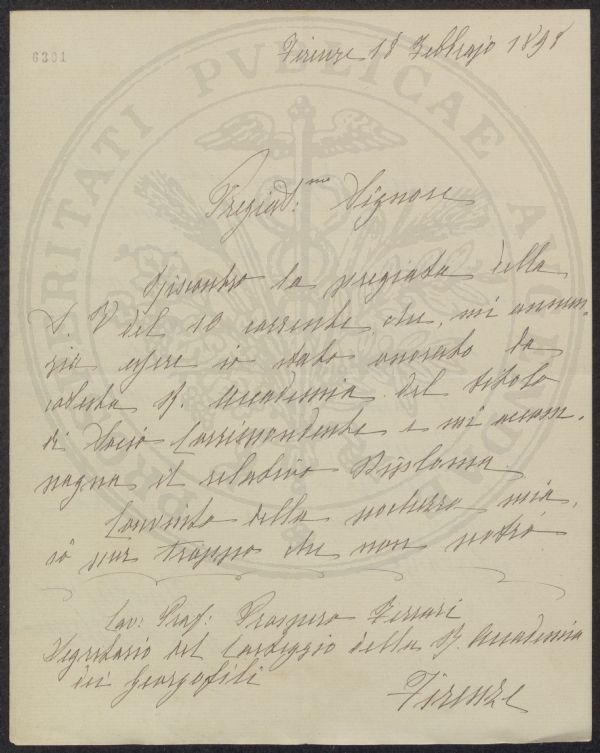 6301
Firenze 18 Febbrajo 1898
Pregiat.mo Signore
Riscontro la pregiata della
S. V del 10 corrente che, mi annun-
zia essere io stato onorato da
codesta R. Accademia del titolo
di Socio Corrispondente e mi accom-
pagna il relativo Diploma.
Convinto della pochezza mia,
sò pur troppo che non potrò
Cav: Prof: Prospero Ferrari
Segretario del Carteggio della R. Accademia
dei Georgofili
Firenze
PROSPERITATI PVBLICAE AVGENDAE